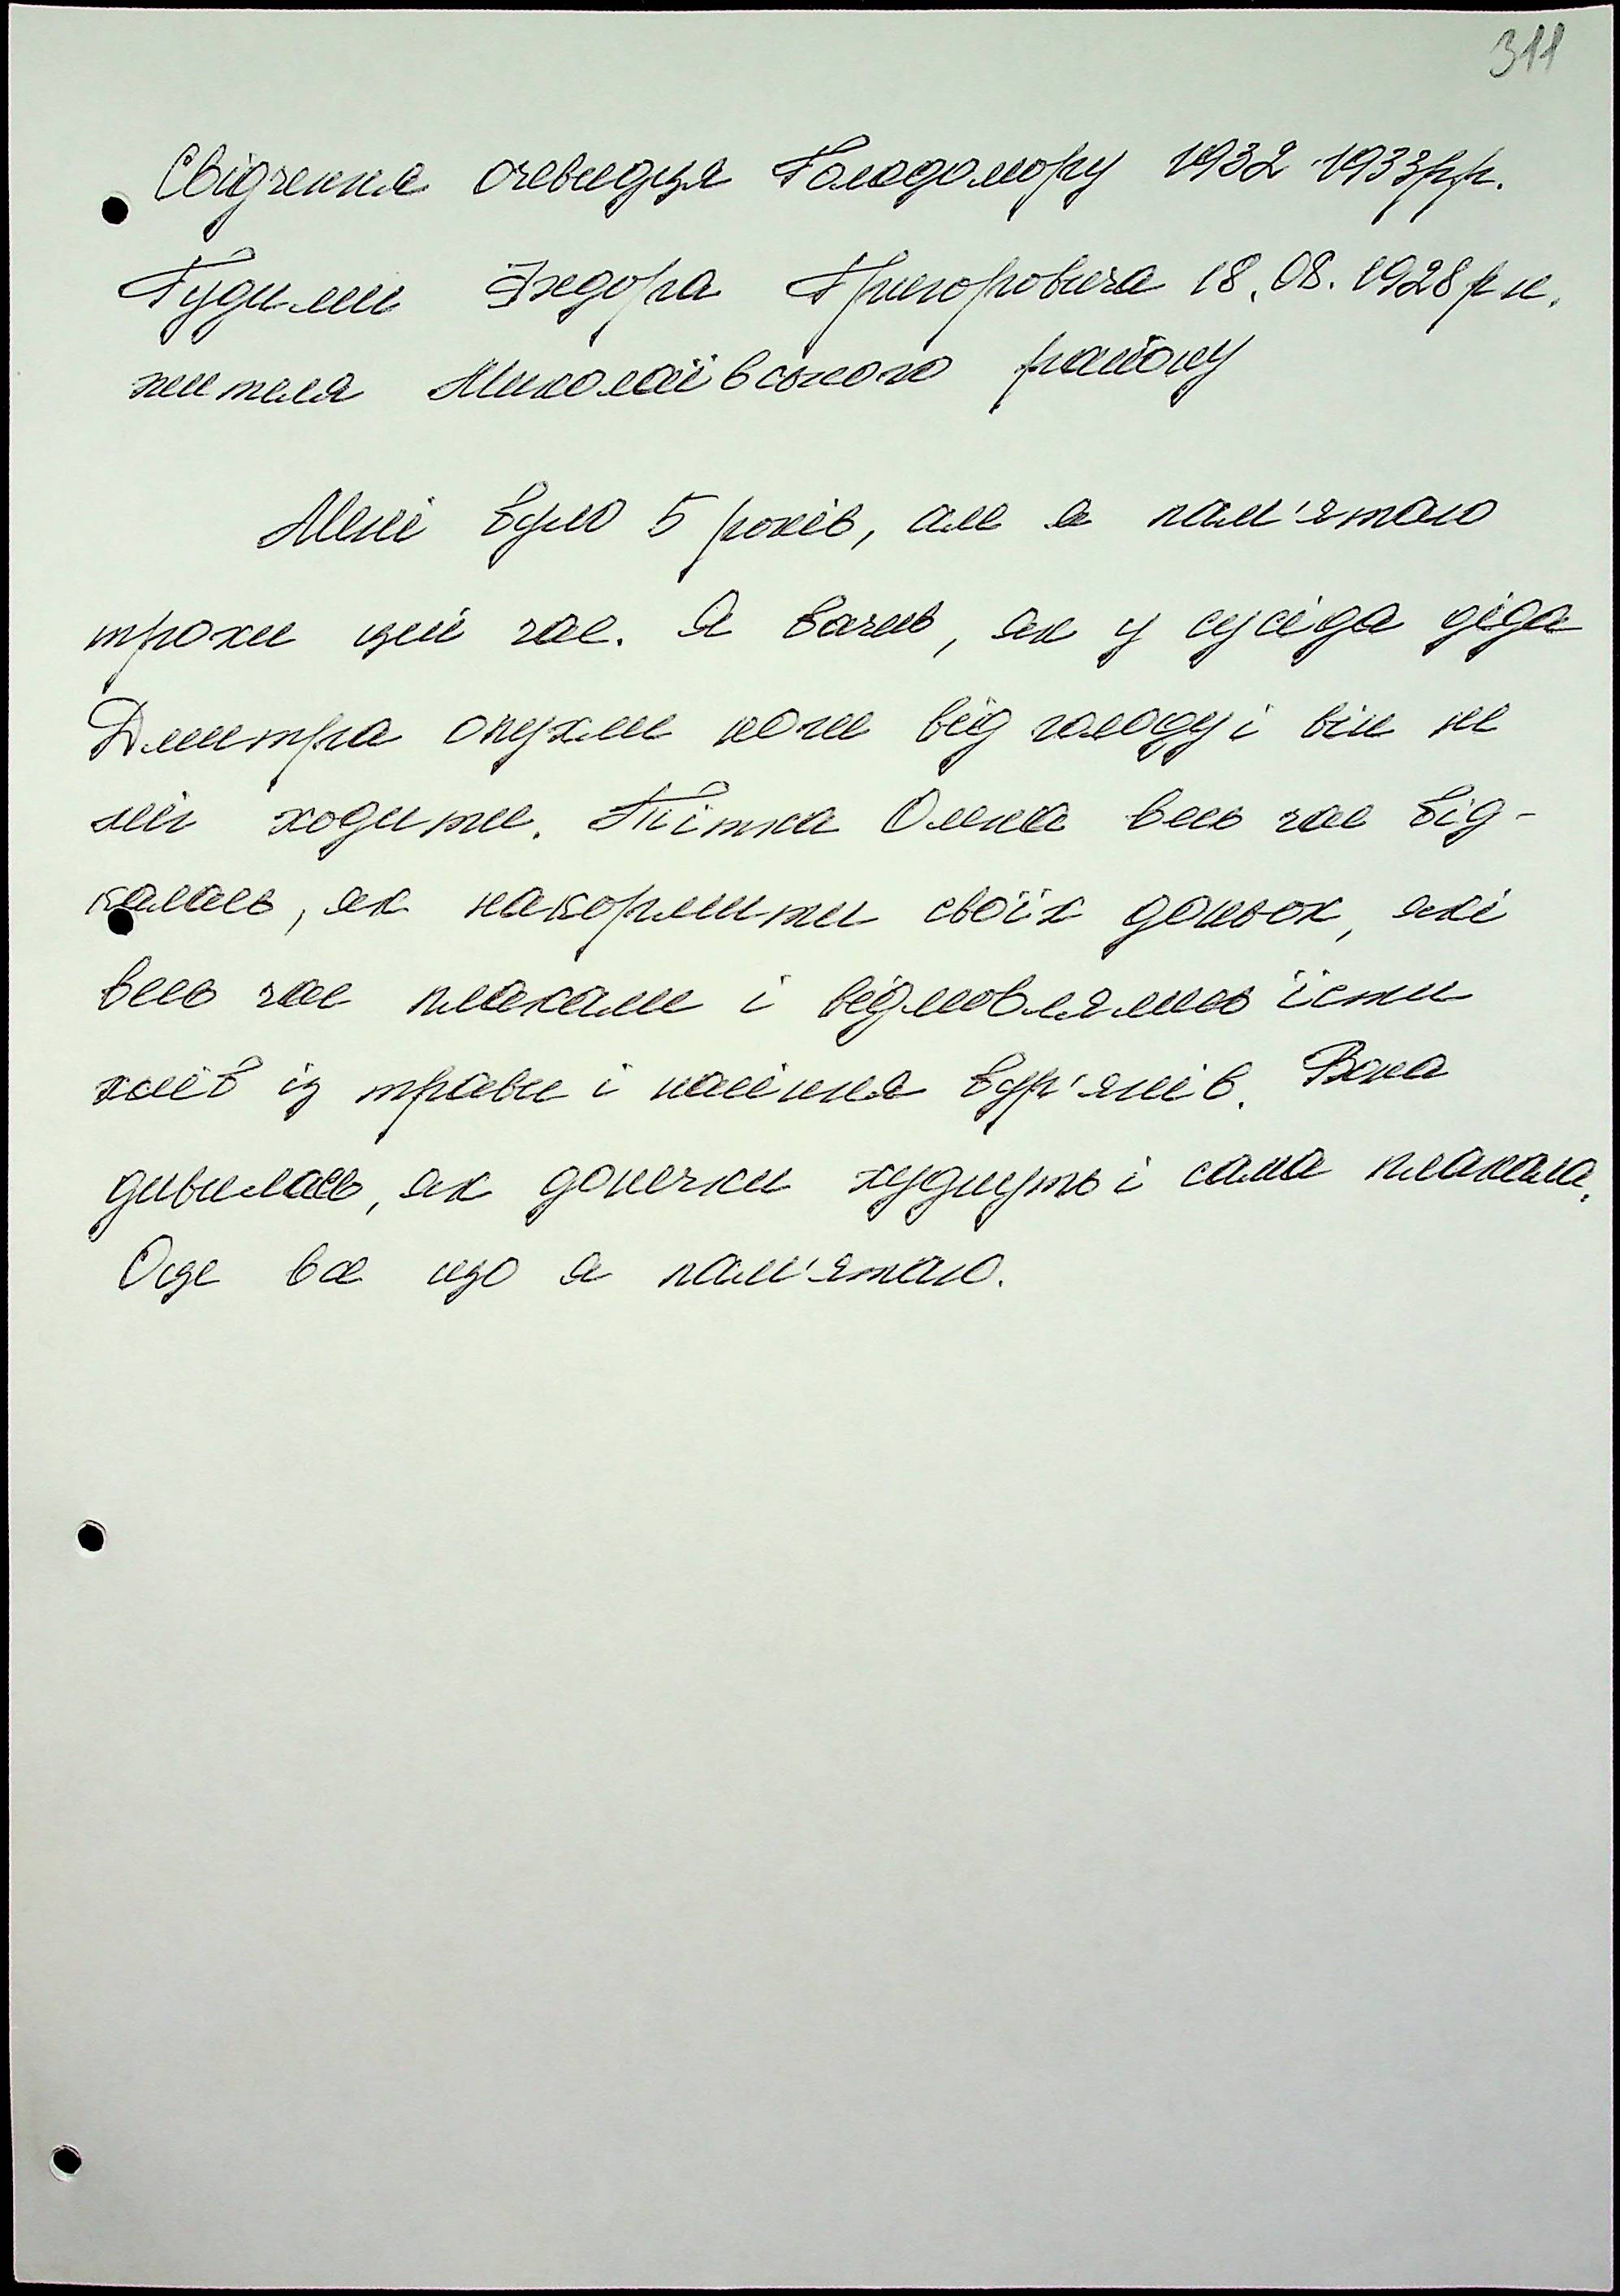 311
Свідчення очевидця Голодомору 1932-1933рр.
Гудими Федора Григоровича 18.08.1928 р н.
жителя Миколаївського району
Мені було 5 років, але я пам'ятаю
трохи цей час. Я бачив, як у сусіда діда
Дмитра опухли ноги від голоду і він не
міг ходити. Тітка Олена весь час бід-
калась, як накормити своїх доньок, які
весь час плакали і відмовлялись їсти
хліб із трави і насіння бур'янів. Вона
дивилась, як донечки худнуть і сама плакала.
Оце все що я пам'ятаю.